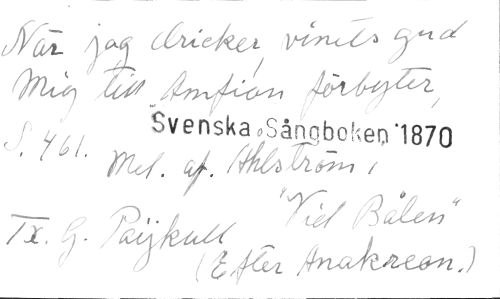 När jag dricker, vinets gud
Mig till Amfion förbyter,
"Svenska Sångboken" 1870
S. 461.
Mel. af. Ahlström,
"Vid Bålen"
Tx. G. Paijkull
(Efter Anakreon.)